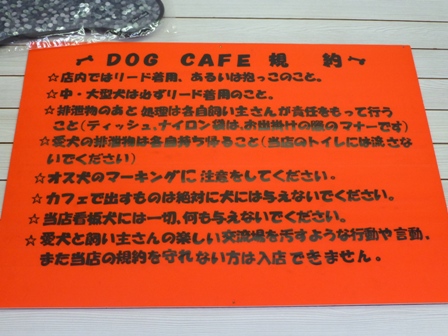 DOG CAFE 規 約
☆店内ではリード着用、あるいは抱っこのこと。
☆中・大型犬は必ずリード着用のこと。
☆排泄物のあと処理は各自飼い主さんが責任をもって行う
こと(ティッシュ、ナイロン袋は、お出掛けの際のマナーです)
☆愛犬の排泄物は各自持ち帰ること(当店のトイレには流さな
いでください)
☆オス犬のマーキングに注意をしてください。
☆カフェで出すものは絶対に犬には与えないでください。
☆当店看板犬には一切、何も与えないでください。
☆愛犬と飼い主さんの楽しい交流場を汚すような行動や言動、
また当店の規約を守れない方は入店できません。